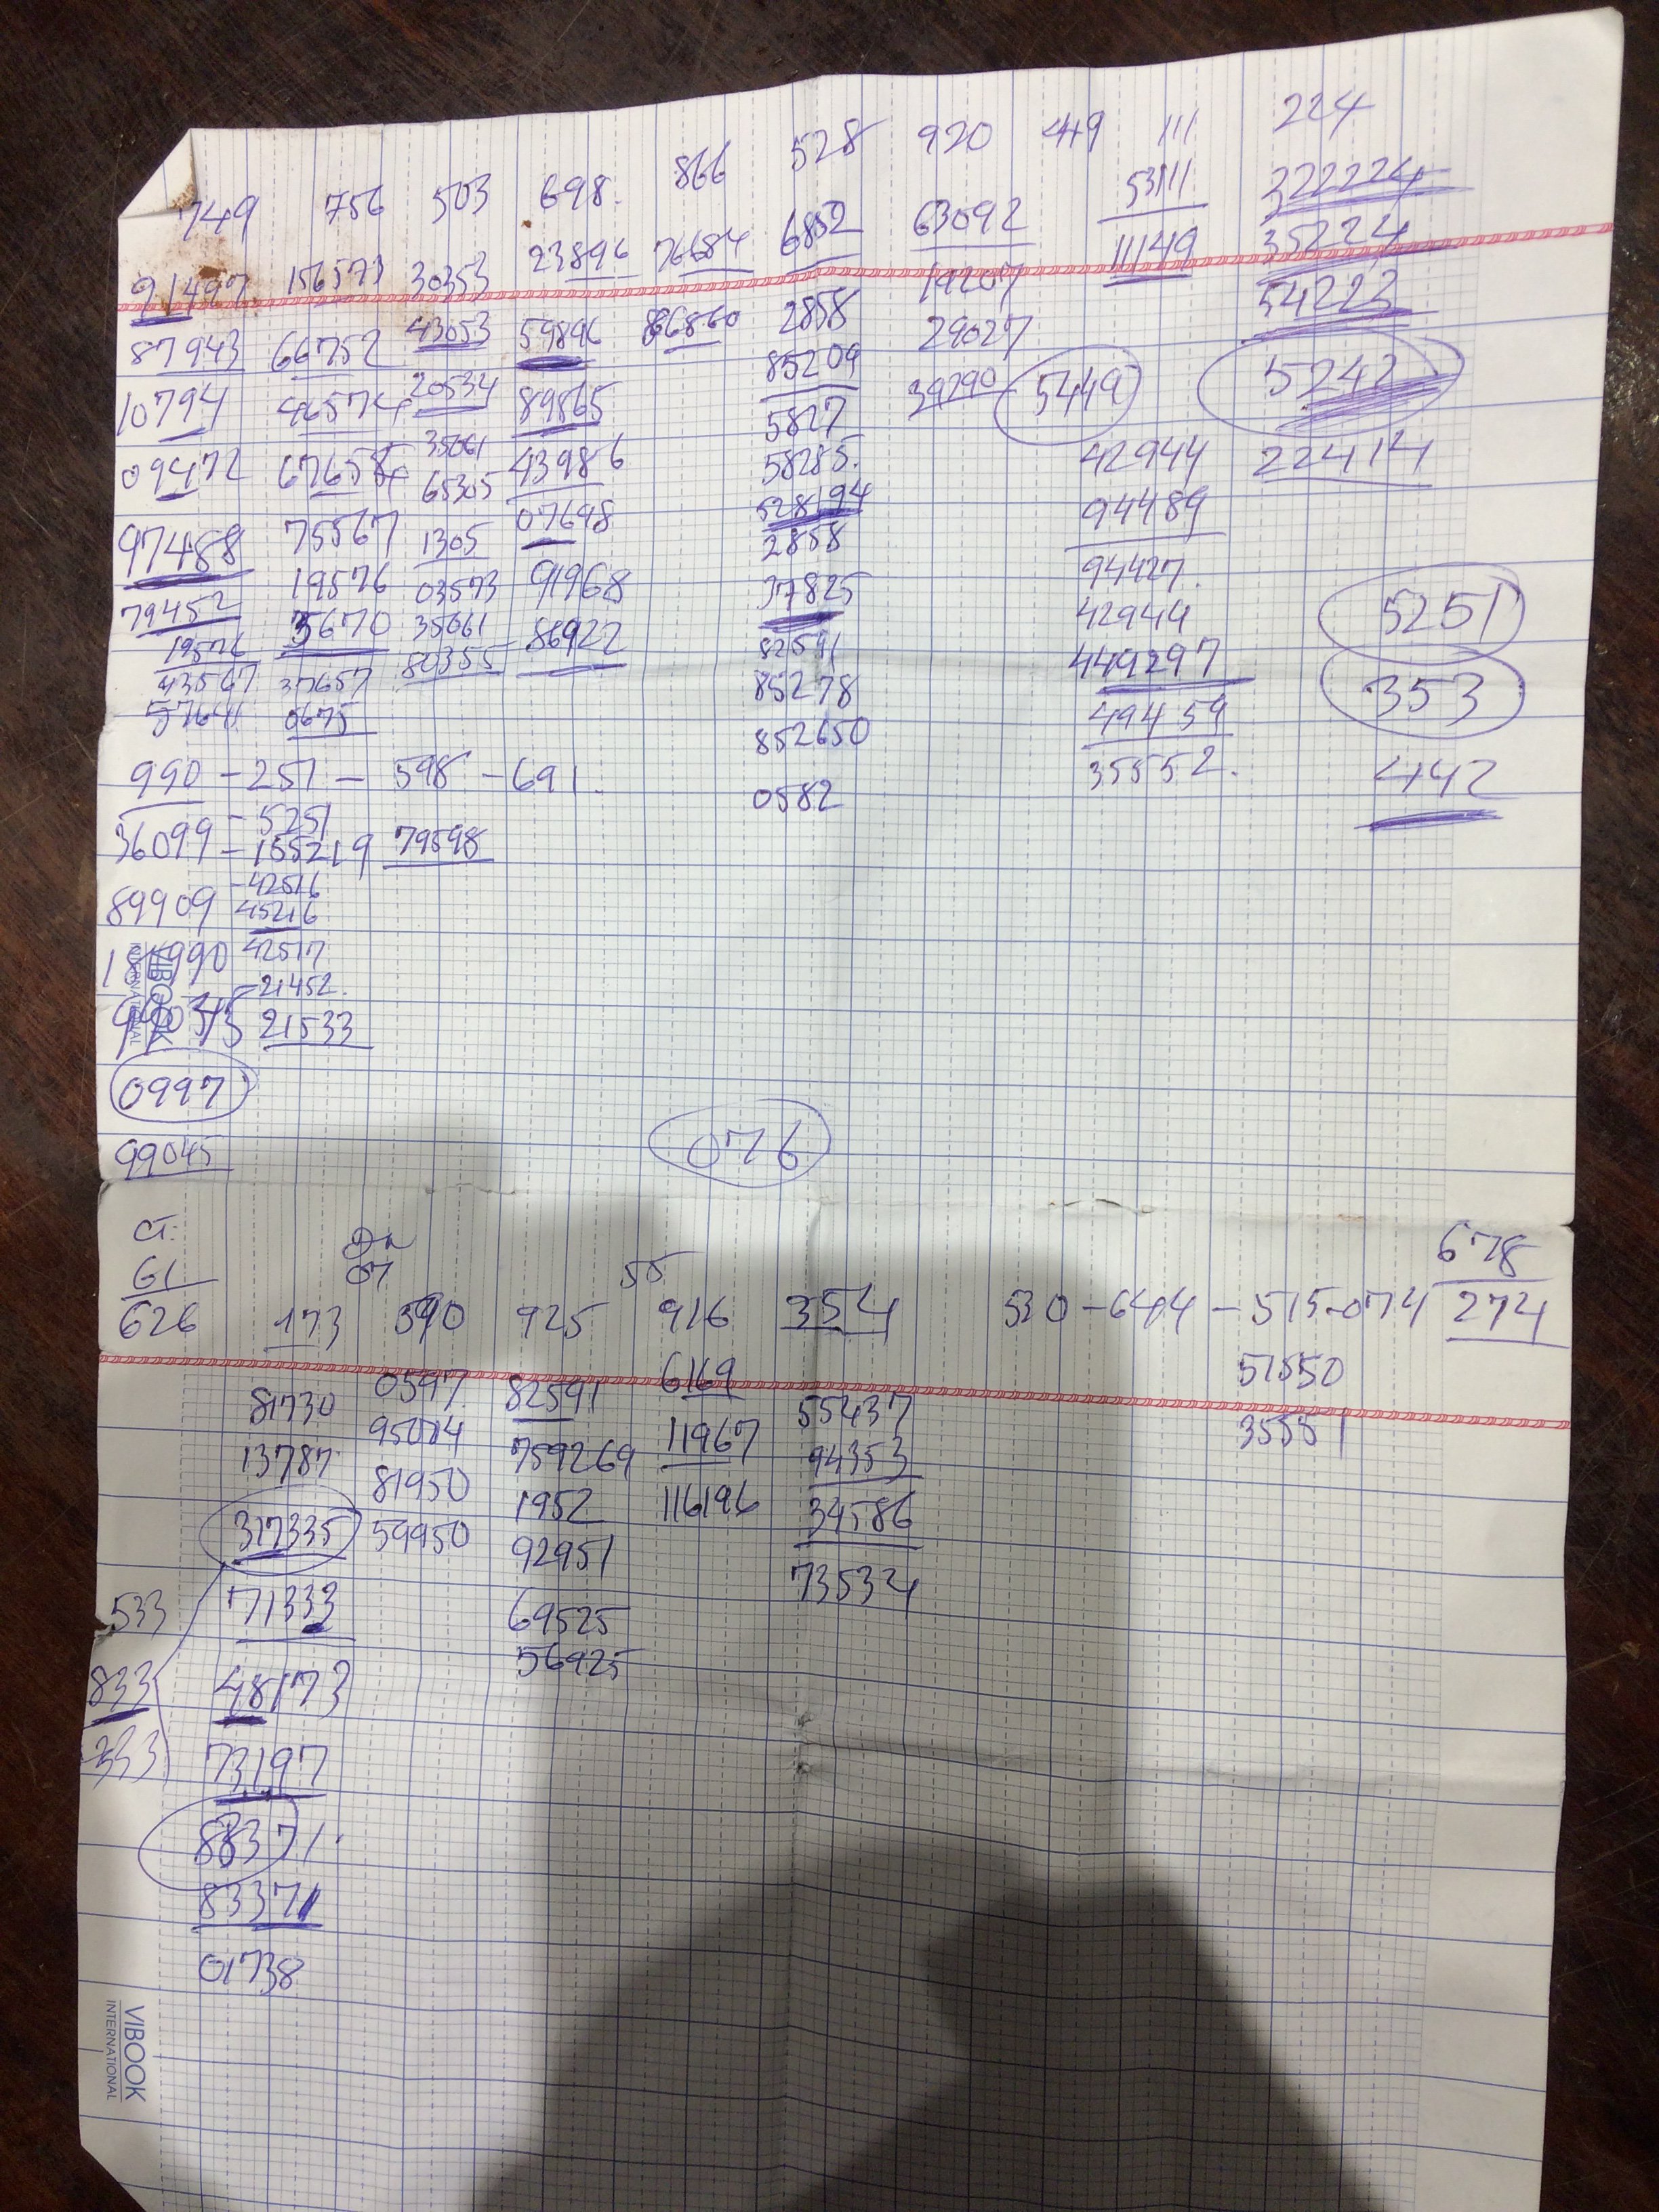 749 756 503 698. 866 528 920 449 111 224
91497 156573 30353 23896 76684 6852 63092 53111 322224
87943 66752 43053 59896 66860 2858 19207 11149 35224
10794 46574 20534 89865 85209 29027 54223
09472 35061 43986 5827 39290 5449 5242
97488 75567 65305 07698 58285. 42944 22414
79452 19576 1305 91968 528194 94489
19576 5670 03573 86922 2858 94427.
43567 37657 35061 37825 42944 5251
57641 0675 80355 82591 449297 353
990 - 251 - 598 - 691. 85278 49459 442
36099 - 5251 852650 35552.
- 155219 79598 0582
89909 - 42516
45216
42517
- 21452.
21533
0997
99045 076
CT:
61 55 678
626 173 590 925 916 354 530 - 644 - 515 - 074 274
81730 0597 82591 6169 55437 51550
13787 95014 759269 11967 94353 35551
317335 81950 1952 116196 34586
533 71333 59950 92951 73534
833 48173 69525
333 73197 56925
88371
83371
01738
VIBOOK
INTERNATIONAL
VIBOOK
INTERNATIONAL